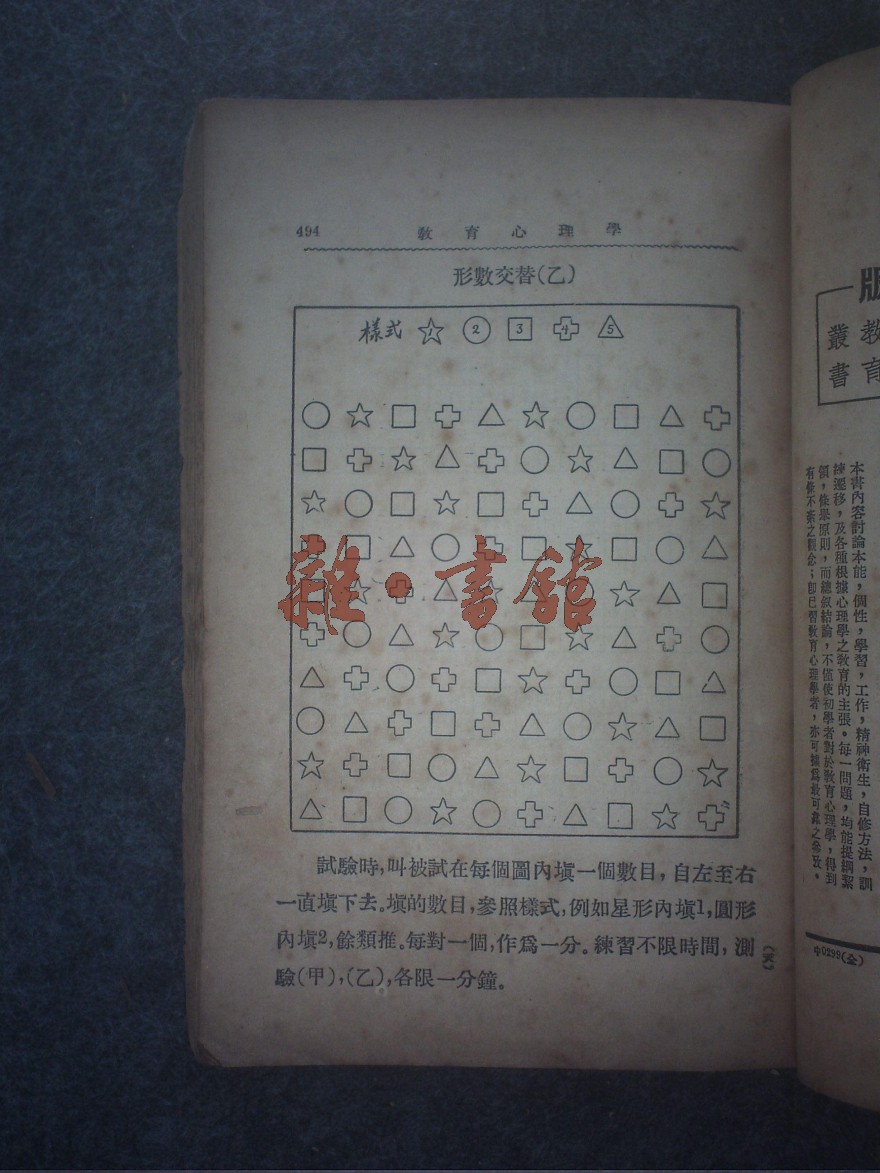 494
教育心理學
形數交替(乙)
樣式 1 2 3 4 5
雜·書館
試驗時,叫被試在每個圖內塡一個數目,自左至右
一直塡下去。塡的數目,參照樣式,例如星形內塡1,圓形
內塡2,餘類推。每對一個,作爲一分。練習不限時間,測
驗(甲),(乙),各限一分鐘。
(天)
版
教育
叢書
本書內容討論本能,個性,學習,工作,精神衛生,自修方法,訓
練遷移,及各種根據心理學之敎育的主張。每一問題,均能提綱挈
領,條舉原則,而總叙結論,不僅使初學者對於敎育心理學,得到
有條不紊之觀念;卽已習敎育心理學者,亦可據爲最可靠之參攷。
中0299(全)